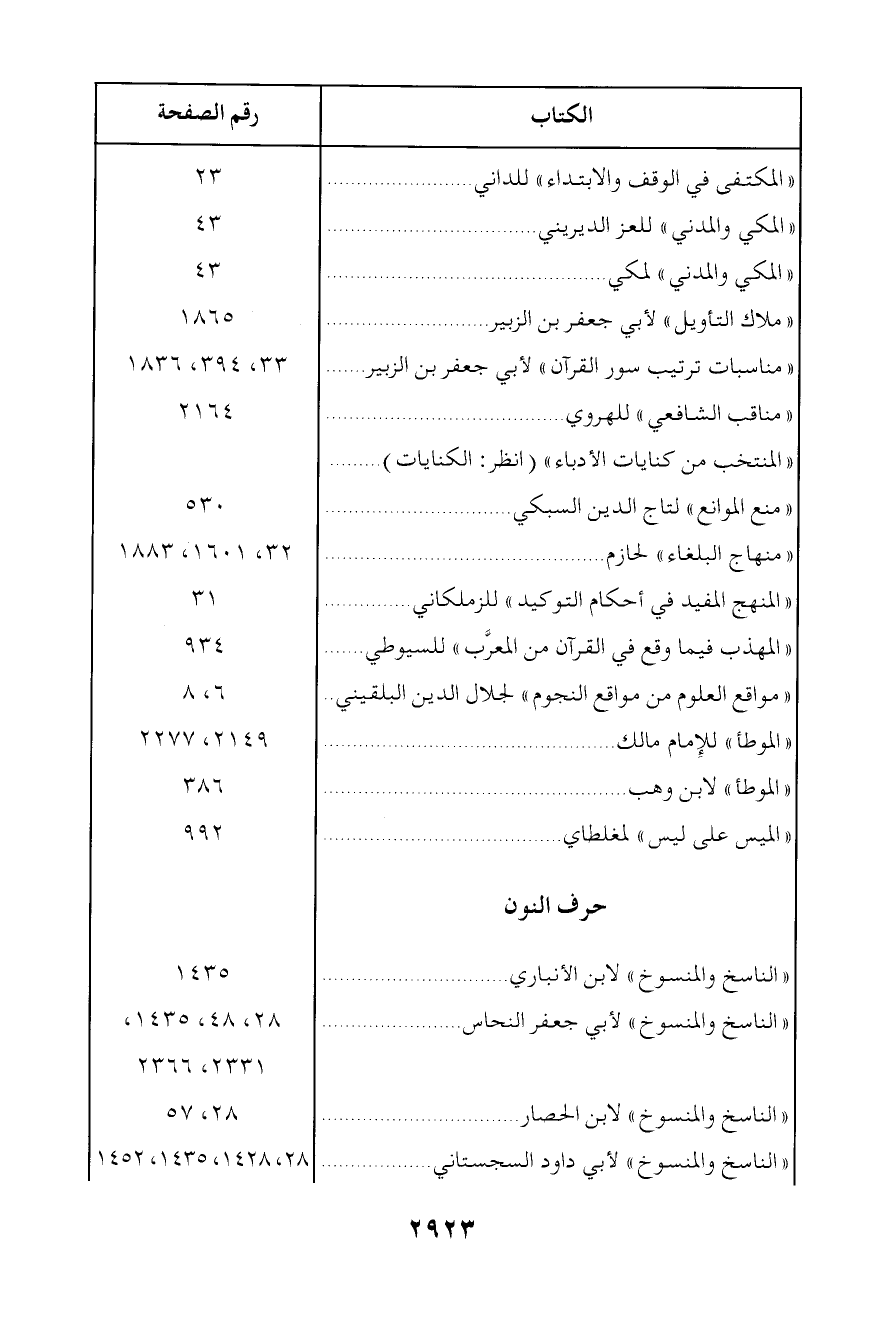 الكتاب رقم الصفحة
«المكتفى في الوقف والابتداء» للداني ........................ ٢٣
«المكي والمدني» للعز الديريني ........................ ٤٣
«المكي والمدني» لمكي ........................ ٤٣
«ملاك التأويل» لأبي جعفر بن الزبير ........................ ١٨٦٥
«مناسبات ترتيب سور القرآن» لأبي جعفر بن الزبير ....... ٣٣، ٣٩٤، ١٨٣٦
«مناقب الشافعي» للهروي ........................ ٢١٦٤
«المنتخب من كنايات الأدباء» (انظر: الكنايات) .........
«منع الموانع» لتاج الدين السبكي ........................ ٥٣٠
«منهاج البلغاء» لحازم ........................ ٣٢، ١٦٠١، ١٨٨٣
«المنهج المفيد في أحكام التوكيد» للزملكاني .............. ٣١
«المهذب فيما وقع في القرآن من المعرَّب» للسيوطي ....... ٩٣٤
«مواقع العلوم من مواقع النجوم» لجلال الدين البلقيني .. ٦، ٨
«الموطأ» للإمام مالك ........................ ٢١٤٩، ٢٢٧٧
«الموطأ» لابن وهب ........................ ٣٨٦
«الميس على ليس» لمغلطاي ........................ ٩٩٢
حرف النون
«الناسخ والمنسوخ» لابن الأنباري ........................ ١٤٣٥
«الناسخ والمنسوخ» لأبي جعفر النحاس ........................ ٢٨، ٤٨، ١٤٣٥،
٢٣٣١، ٢٣٦٦
«الناسخ والمنسوخ» لابن الحصار ........................ ٢٨، ٥٧
«الناسخ والمنسوخ» لأبي داود السجستاني .................. ٢٨، ١٤٢٨، ١٤٣٥، ١٤٥٢
٢٩٢٣